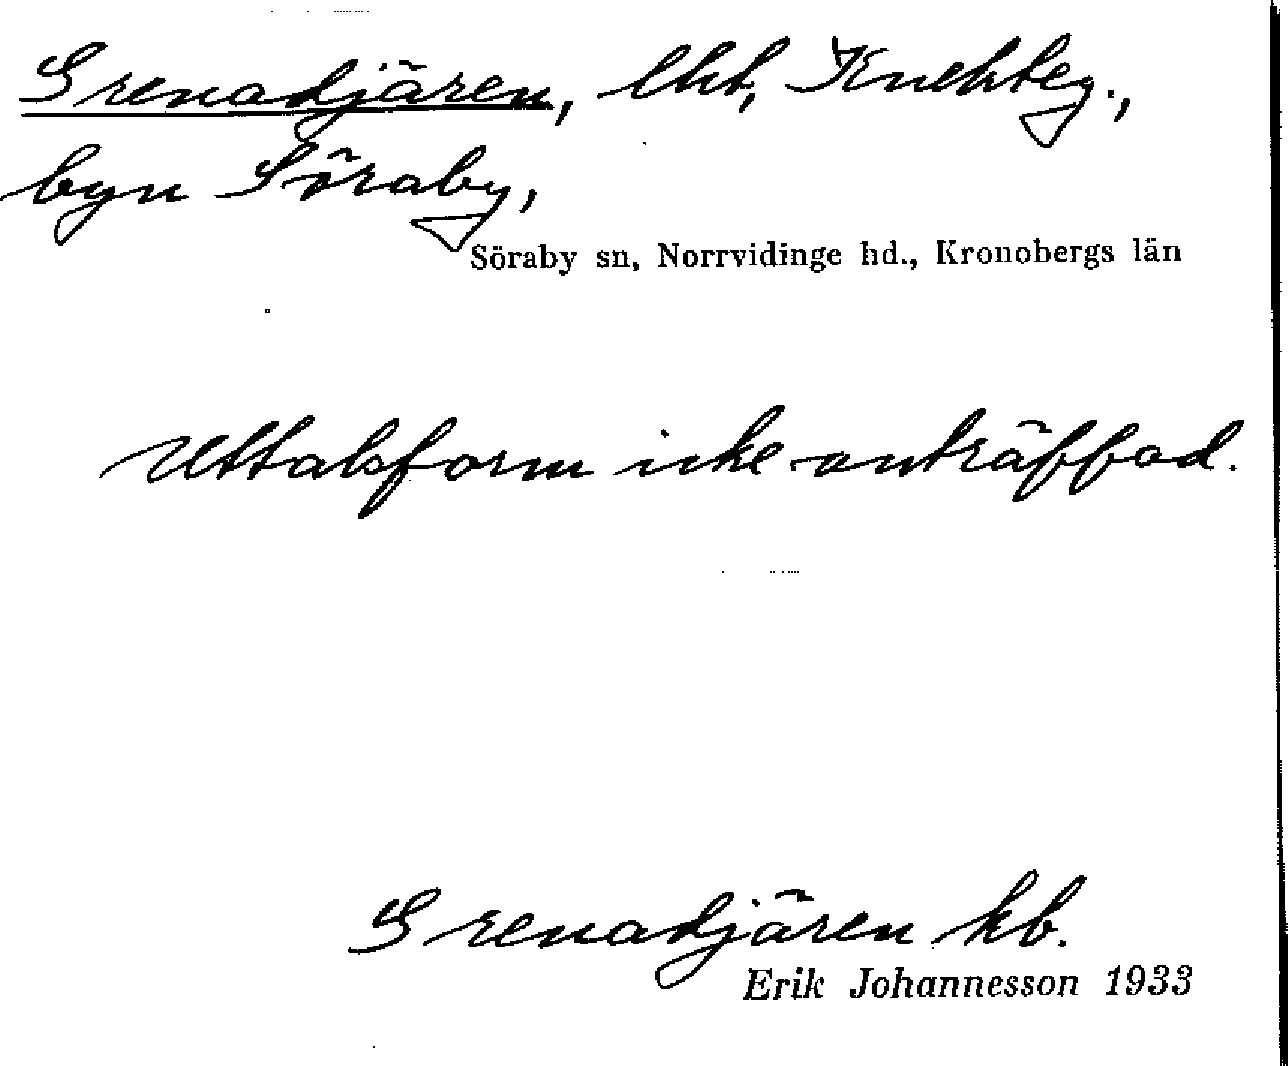 Grenadjären, lht, Knekteg.,
byn Söraby,
Söraby sn, Norrvidinge hd., Kronobergs län
Uttalsform icke anträffad.
Grenadjären kb.
Erik Johannesson 1933